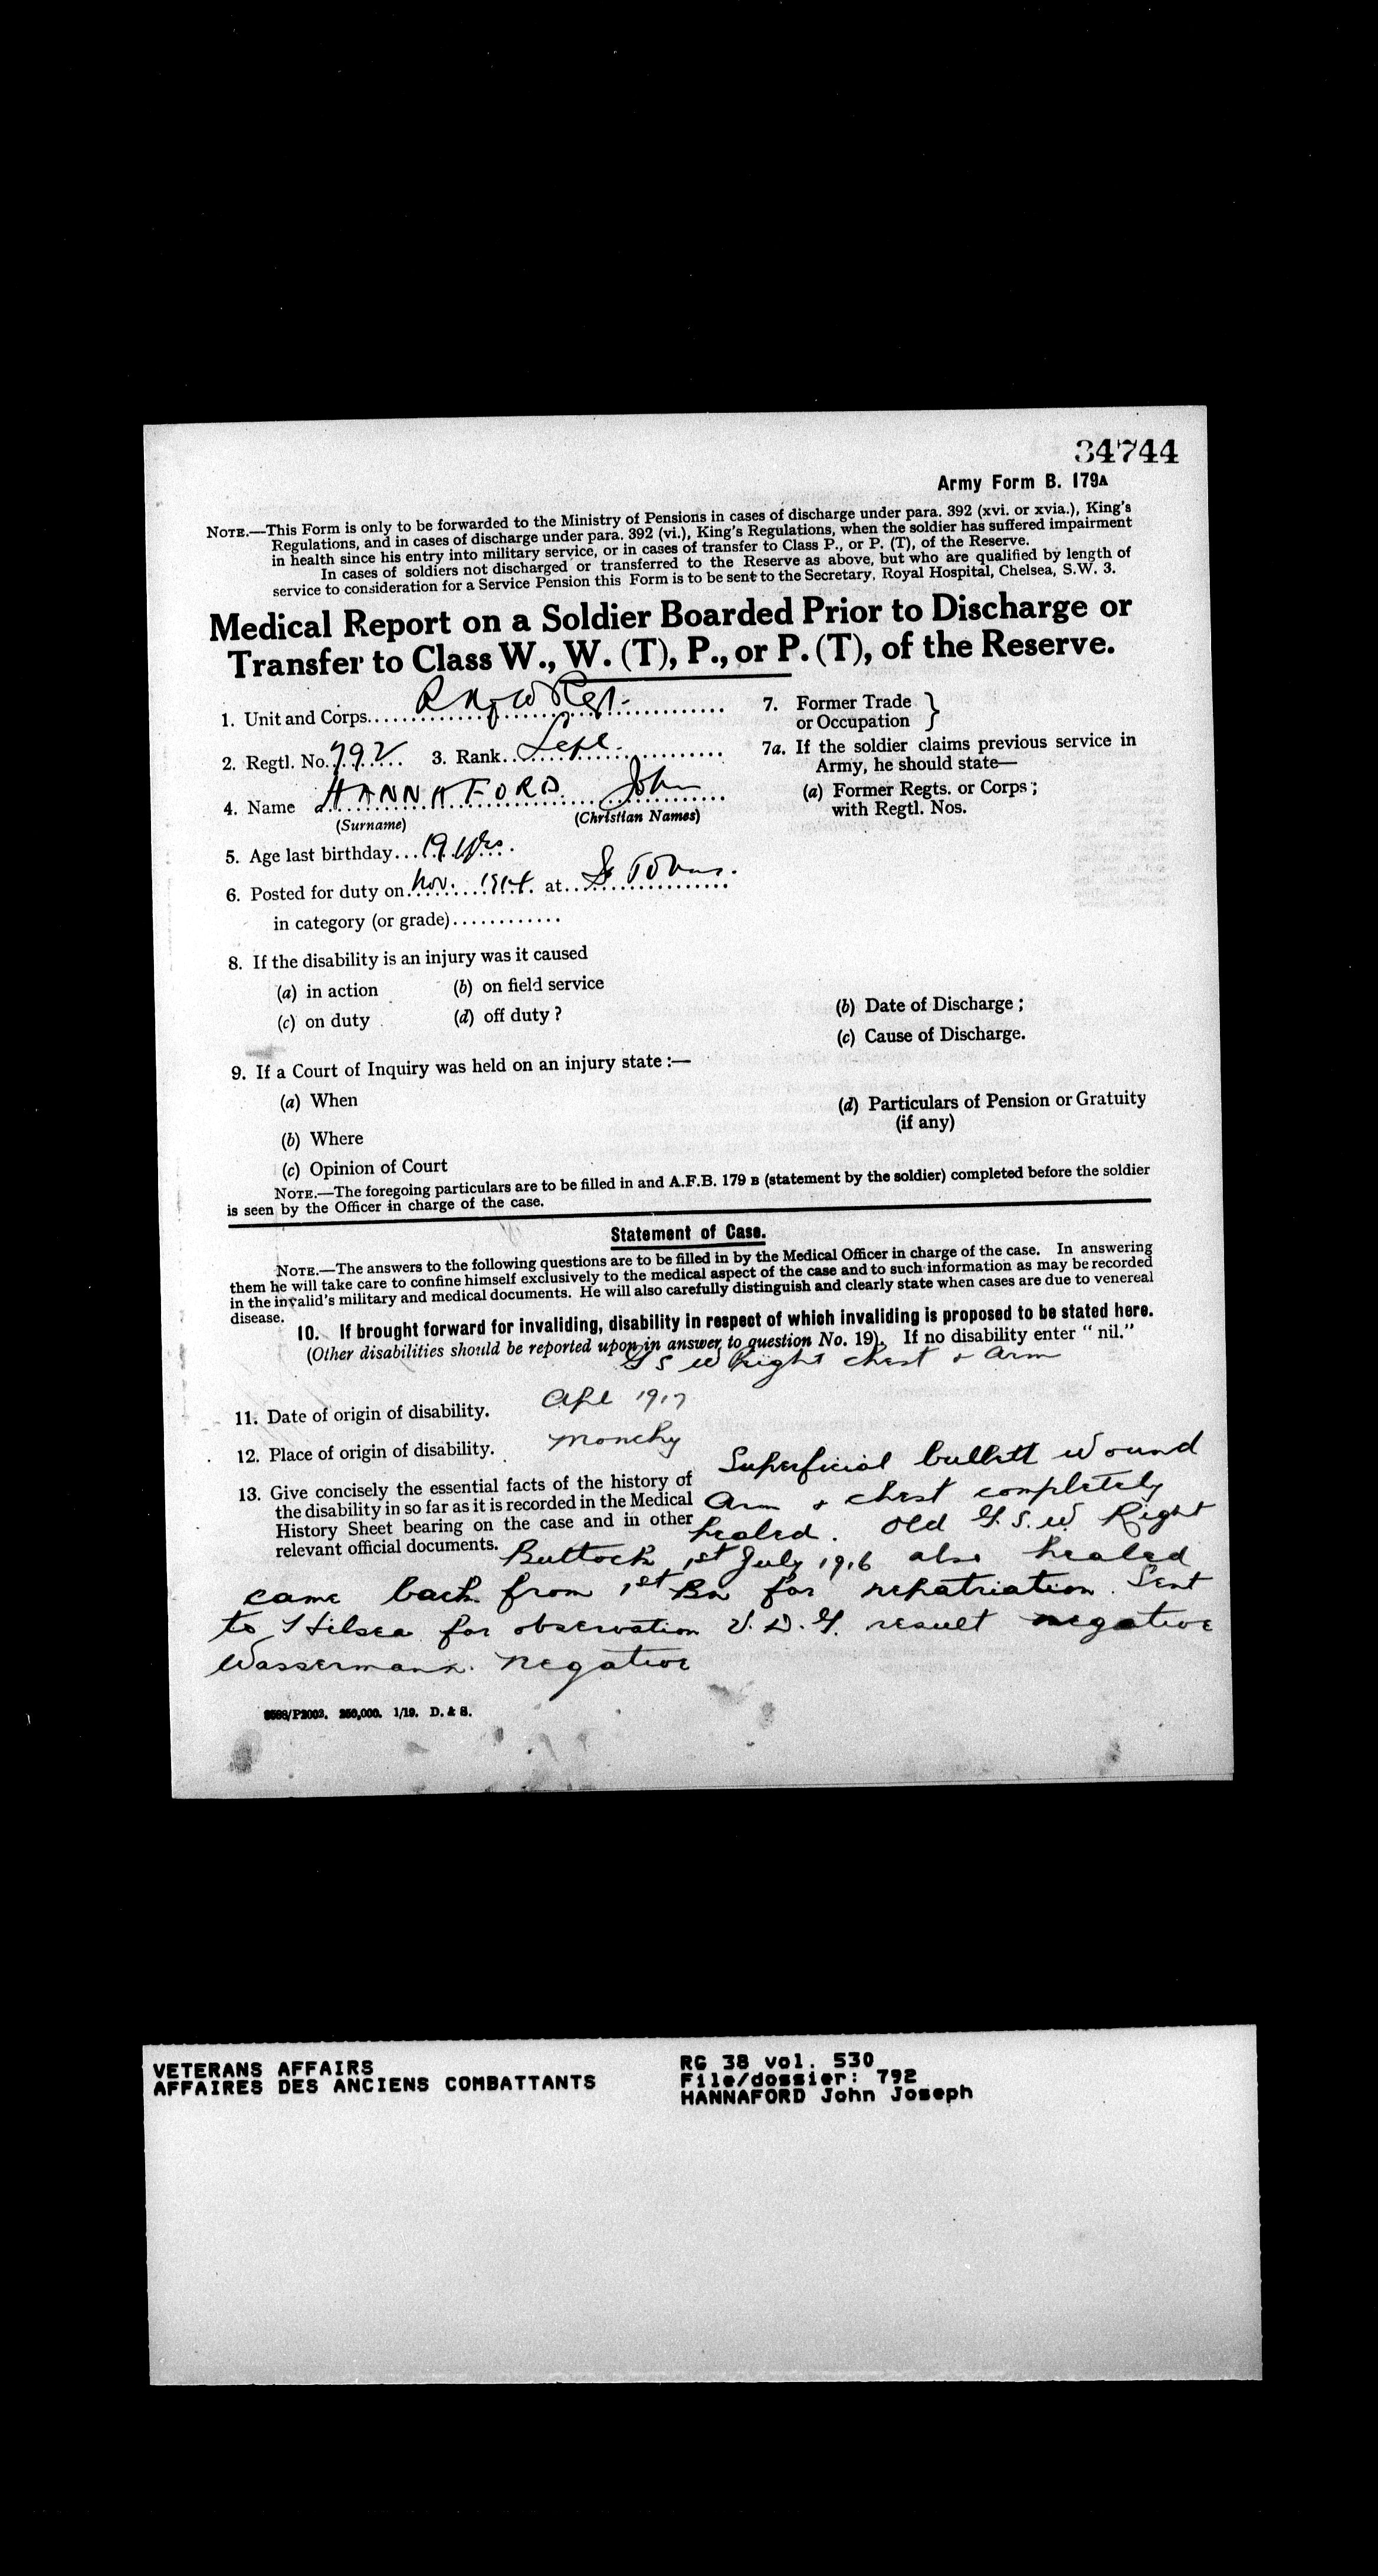 34744
Army Form B. 179A
NOTE.—This Form is only to be forwarded to the Ministry of Pensions in cases of discharge under para. 392 (xvi. or xvia.), King's
Regulations, and in cases of discharge under para. 392 (vi.), King's Regulations, when the soldier has suffered impairment
in health since his entry into military service, or in cases of transfer to Class P., or P. (T), of the Reserve.
In cases of soldiers not discharged or transferred to the Reserve as above, but who are qualified by length of
service to consideration for a Service Pension this Form is to be sent to the Secretary, Royal Hospital, Chelsea, S.W. 3.
Medical Report on a Soldier Boarded Prior to Discharge or
Transfer to Class W., W. (T), P., or P. (T), of the Reserve.
1. Unit and Corps... Regt.
2. Regtl. No. 792 3. Rank...
4. Name HANNAFORD John
(Surname) (Christian Names)
5. Age last birthday... 19 yrs.
6. Posted for duty on Nov. 1914 at... St Johns.
in category (or grade)............
7. Former Trade
or Occupation }
7a. If the soldier claims previous service in
Army, he should state—
(a) Former Regts. or Corps;
with Regtl. Nos.
8. If the disability is an injury was it caused
(a) in action (b) on field service
(c) on duty (d) off duty ?
(b) Date of Discharge ;
(c) Cause of Discharge.
9. If a Court of Inquiry was held on an injury state :—
(a) When
(b) Where
(c) Opinion of Court
(d) Particulars of Pension or Gratuity
(if any)
NOTE.—The foregoing particulars are to be filled in and A.F.B. 179 B (statement by the soldier) completed before the soldier
is seen by the Officer in charge of the case.
Statement of Case.
NOTE.—The answers to the following questions are to be filled in by the Medical Officer in charge of the case. In answering
them he will take care to confine himself exclusively to the medical aspect of the case and to such information as may be recorded
in the invalid's military and medical documents. He will also carefully distinguish and clearly state when cases are due to venereal
disease.
10. If brought forward for invaliding, disability in respect of which invaliding is proposed to be stated here.
(Other disabilities should be reported upon in answer to question No. 19). If no disability enter "nil."
G S W Right chest & Arm
11. Date of origin of disability. Apl 1917
12. Place of origin of disability. Monchy
13. Give concisely the essential facts of the history of
the disability in so far as it is recorded in the Medical
History Sheet bearing on the case and in other
relevant official documents.
Superficial bullett wound
Arm & chest completely
healed. Old G.S.W. Right
Buttock 1st July 1916 also healed
came back from 1st Bn for repatriation. Sent
to Hilsea for observation V.D.G. result negative
Wassermann. negative
8588/P2002. 250,000. 1/19. D. & S.
VETERANS AFFAIRS
AFFAIRES DES ANCIENS COMBATTANTS
RG 38 vol. 530
File/dossier: 792
HANNAFORD John Joseph